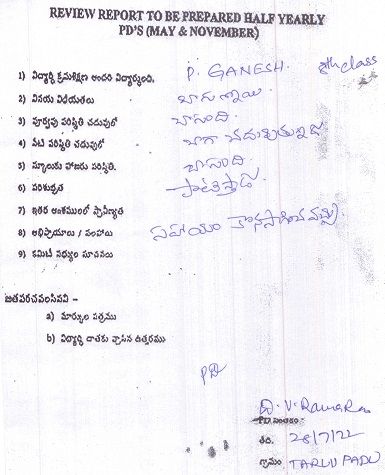 REVIEW REPORT TO BE PREPARED HALF YEARLY
PD'S (MAY & NOVEMBER)
1) విద్యార్థి క్రమశిక్షణ అందరి విద్యార్థులది. P. GANESH. 8th class
2) వినయ విధేయతలు బాగున్నాయి.
3) పూర్వపు పరిస్థితి చదువులో బాగుంది.
4) నేటి పరిస్థితి చదువులో బాగా చదువుతున్నాడు
5) స్కూలుకు హాజరు పరిస్థితి. బాగుంది.
6) పరిశుభ్రత పాటిస్తాడు.
7) ఇతర అంశములలో ప్రావీణ్యత
8) అభిప్రాయాలు / సలహాలు సహాయం కొనసాగించవచ్చు
9) కమిటీ సభ్యుల సూచనలు
జతపరచవలసినవి –
a) మార్కుల పత్రము
b) విద్యార్థి దాతకు వ్రాసిన ఉత్తరము
PD
D. V. Rama Rao
PD సంతకం
తేది. 28/7/22
గ్రామం TARLUPADU